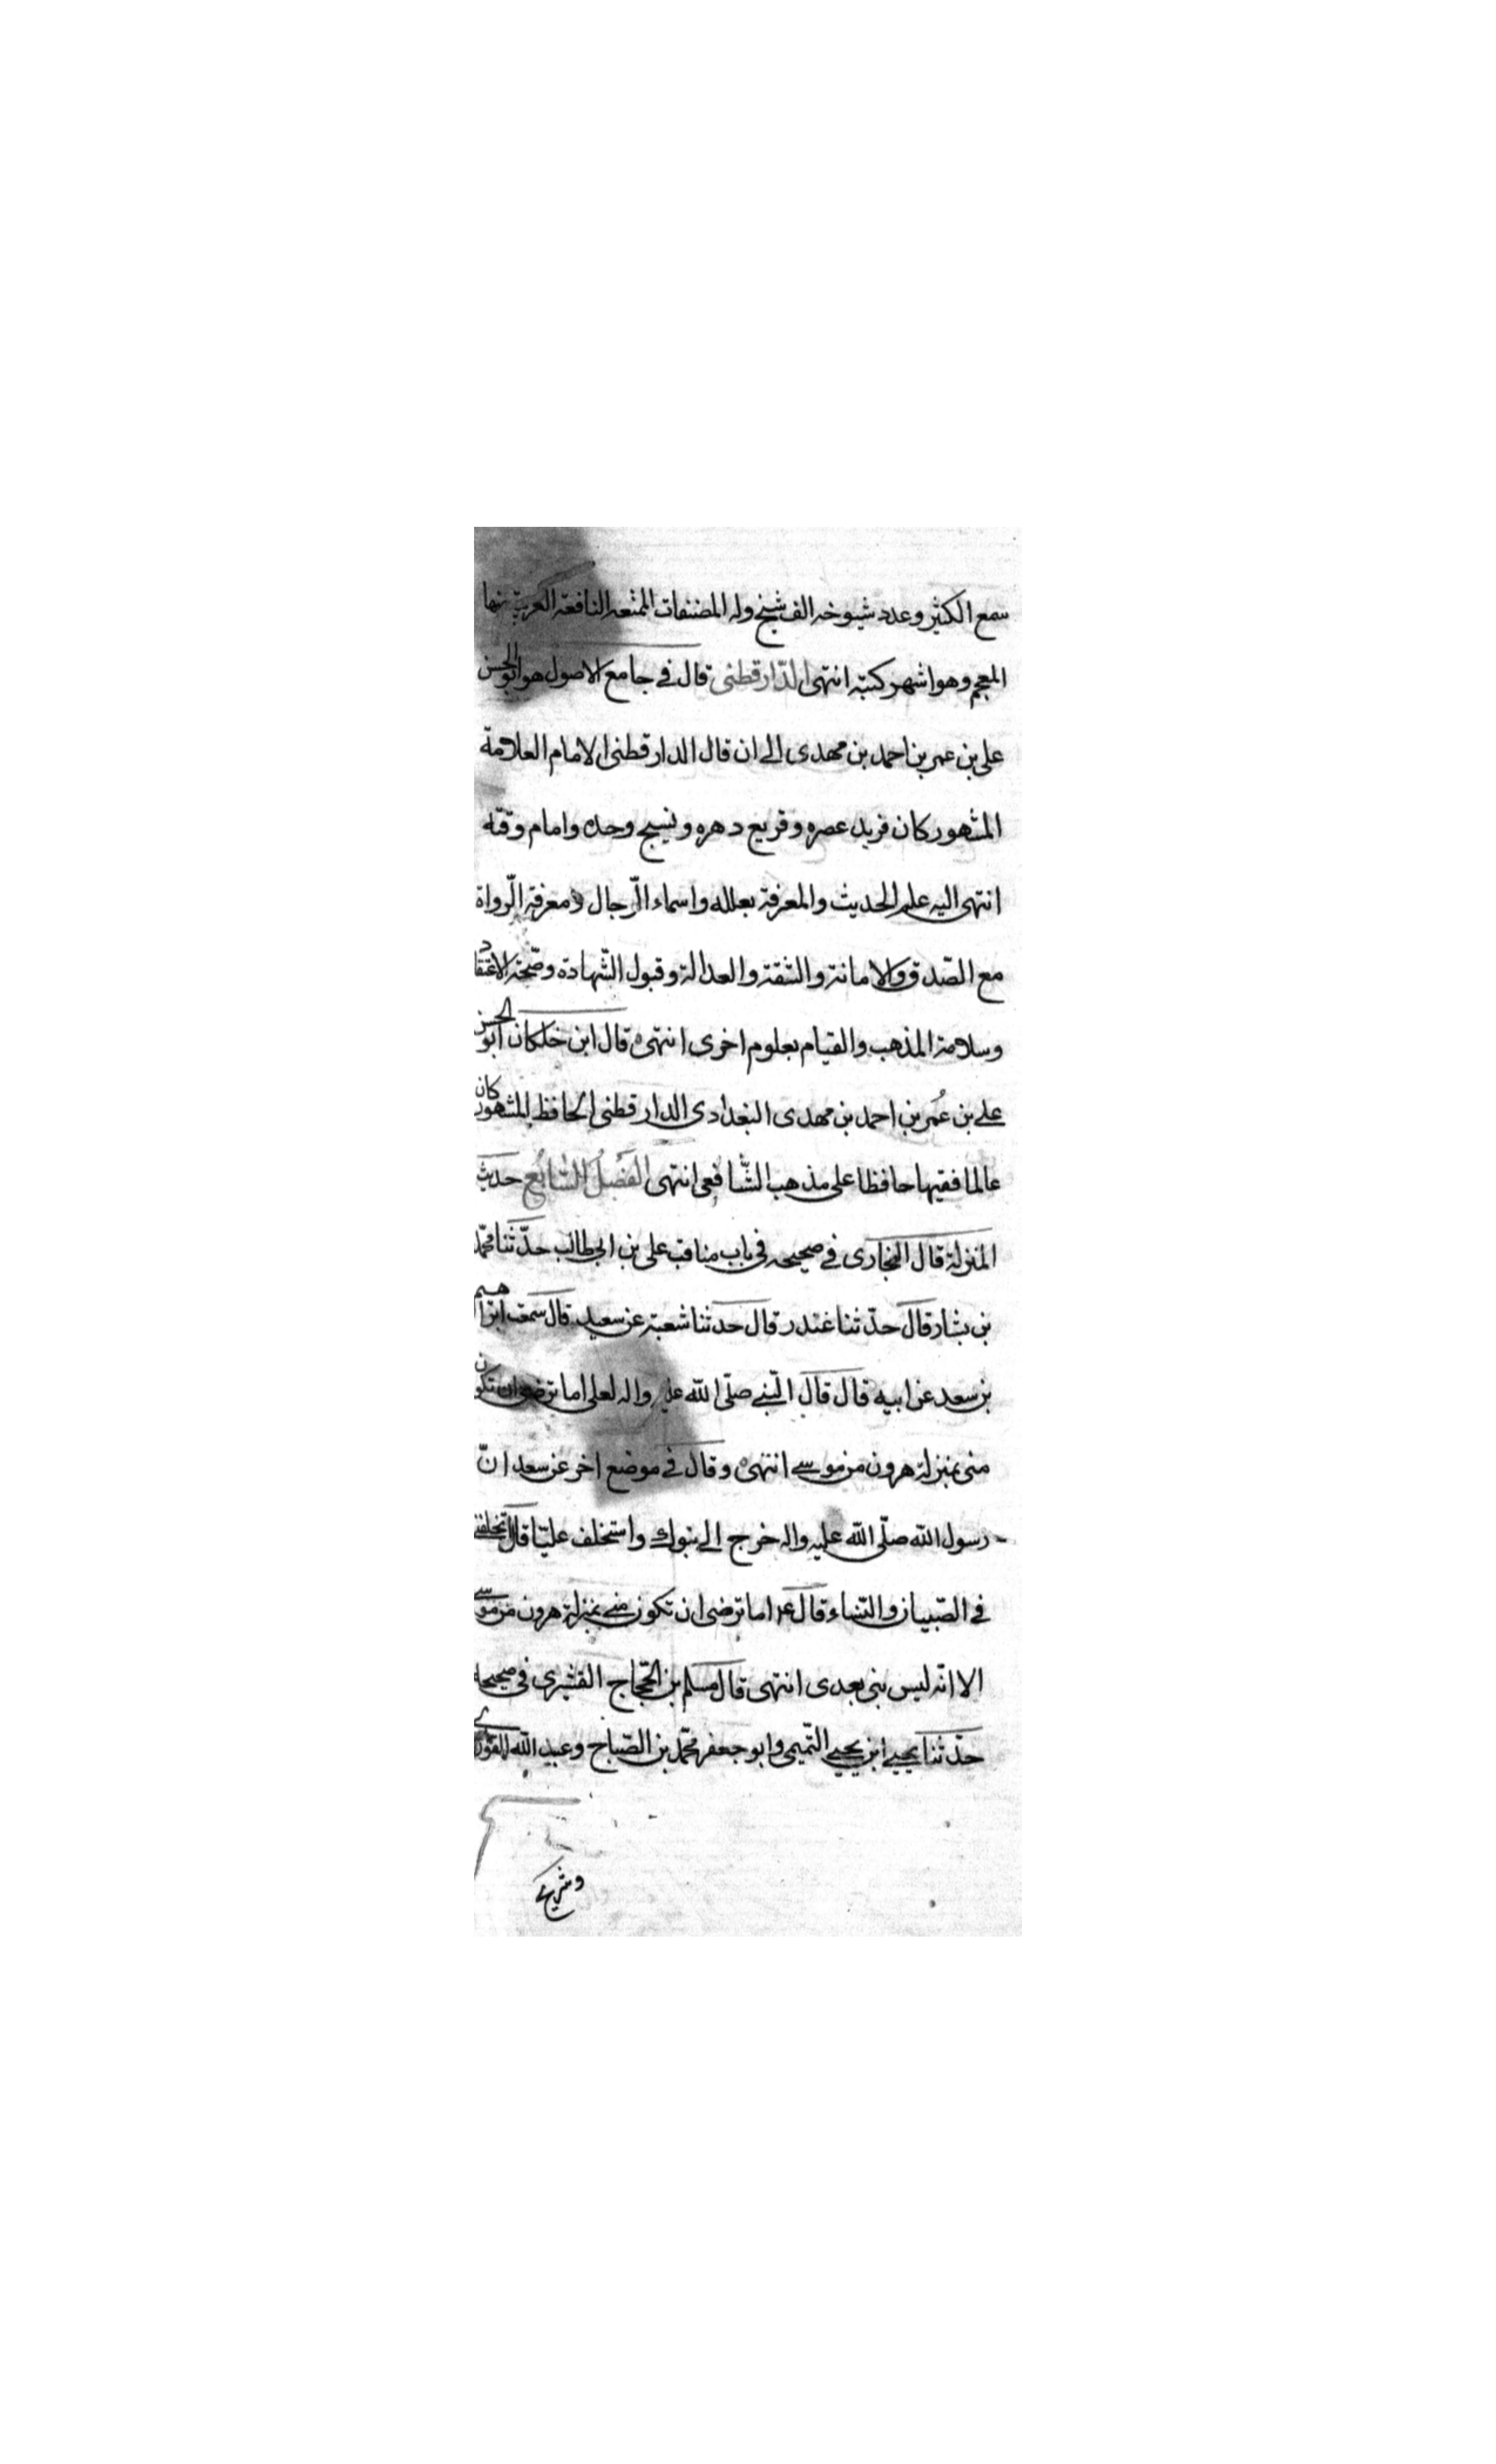 سمع الكثير وعدد شيوخه الف شيخ وله المصنفات الممتعه النافعة العربية منها
المعجم وهو اشهر كتبه انتهى الدّارقطنى قال في جامع الاصول هو ابو الحسن
على بن عمر بن احمد بن مهدى الى ان قال الدارقطنى الامام العلامة
المشهور كان فريد عصره وقريع دهره ونسيج وحده وامام وقته
انتهى اليه علم الحديث والمعرفة بعلله واسماء الرّجال ومعرفة الرّواة
مع الصّدق والامانة والثقة والعدالة وقبول الشّهادة وصّحة الاعتقاد
وسلامة المذهب والقيام بعلوم اخرى انتهى قال ابن خلكان ابو الحسن
على بن عُمر بن احمد بن مهدى البغدادى الدارقطنى الحافظ المشهور كان
عالما فقيها حافظا على مذهب الشّافعى انتهى الفَصْلُ السّابعُ حديث
المنزلة قال البخارى في صحيحه فى باب مناقب على بن ابى طالب حدّثنا محمّد
بن بشار قال حدّثنا غندر قال حدثنا شعبة عن سعيد قال سمعت ابراهيم
بن سعد عن ابيه قال قال النّبى صلّى اللّه عليه واله لعلى اما ترضى ان تكون
منى بمنزلة هرون من موسى انتهى وقال في موضع اخر عن سعد انّ
رسول اللّه صلّى اللّه عليه واله خرج الى تبوك واستخلف عليّا قال اتخلفنى
في الصّبيان والنّساء قال ع اما ترضى ان تكون منى بمنزلة هرون من موسى
الا انّه ليس نبى بعدى انتهى قال مسلم بن الحجّاج القشيرى فى صحيحه
حدّثنا يحيى ابن يحيى التّميمى وابو جعفر محمّد بن الصّباح وعبيد اللّه القوارى
وشريح